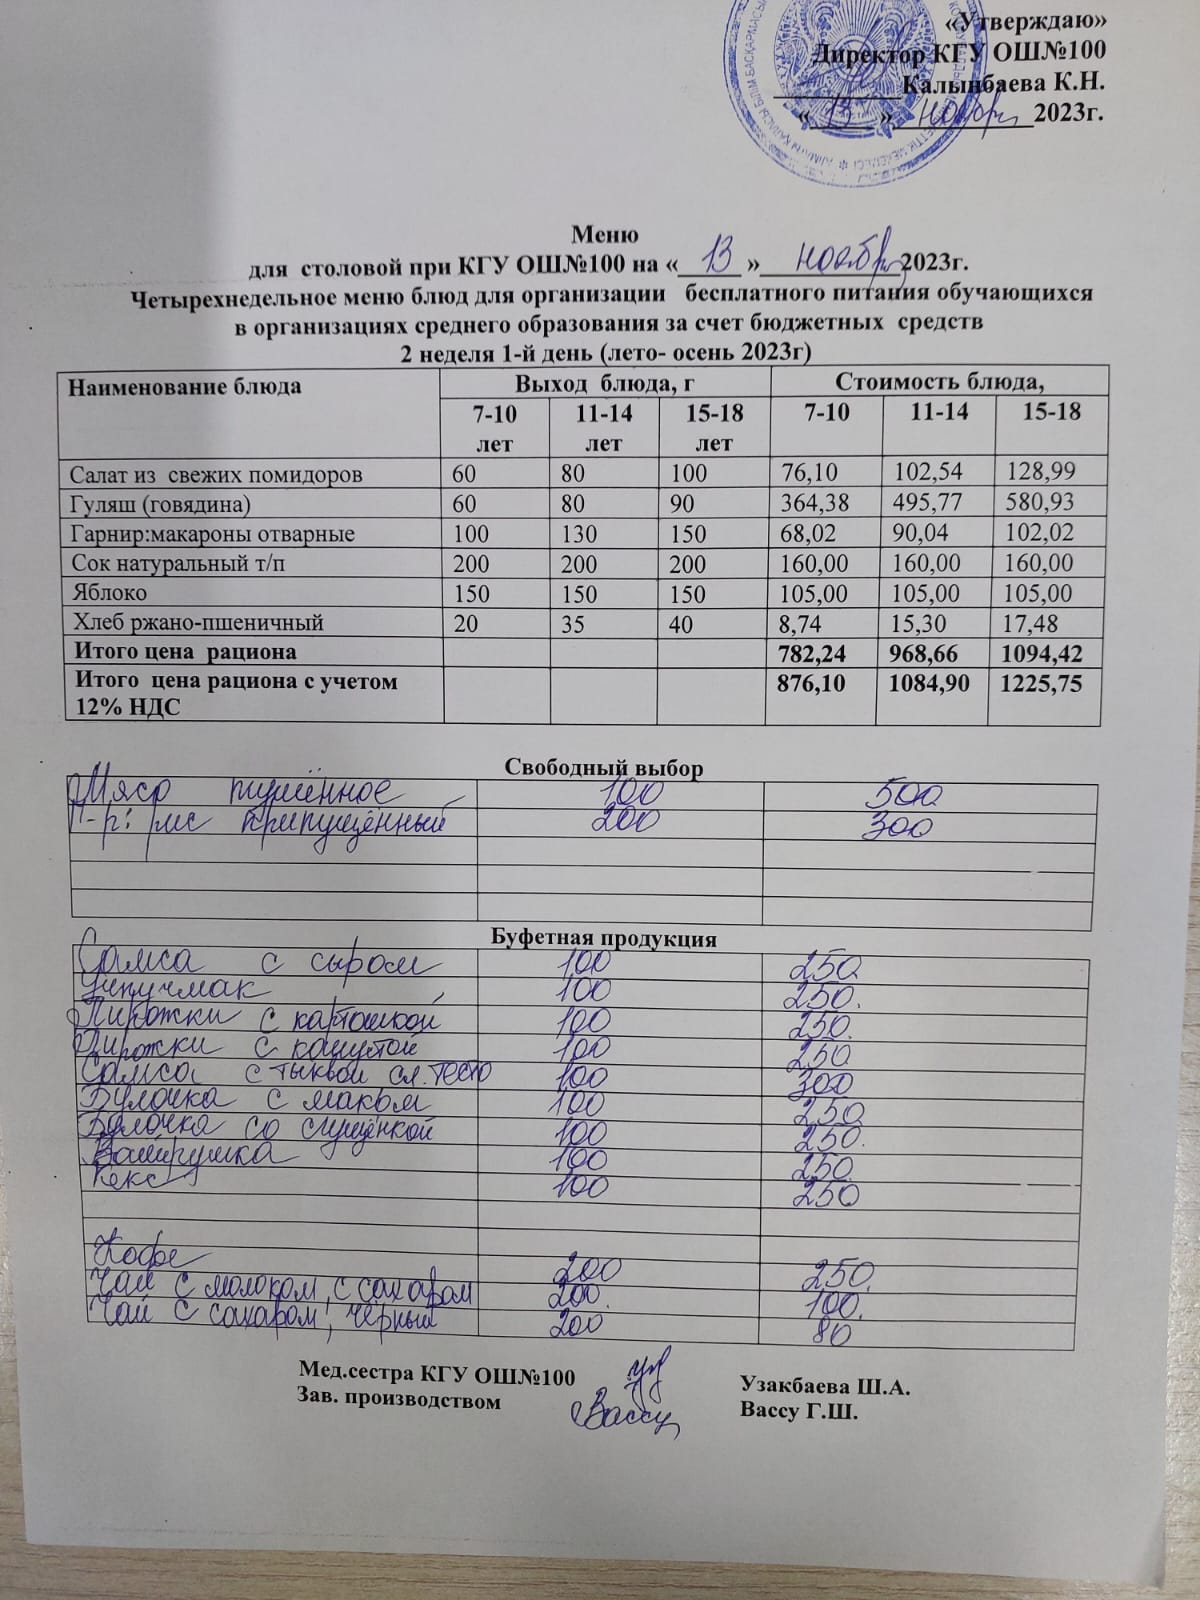 «Утверждаю»
Директор КГУ ОШ№100
__________Калынбаева К.Н.
« 13 » ноября 2023г.
Меню
для столовой при КГУ ОШ№100 на « 13 » ноября 2023г.
Четырехнедельное меню блюд для организации бесплатного питания обучающихся
в организациях среднего образования за счет бюджетных средств
2 неделя 1-й день (лето- осень 2023г)
Наименование блюда Выход блюда, г Стоимость блюда,
7-10 лет 11-14 лет 15-18 лет 7-10 11-14 15-18
Салат из свежих помидоров 60 80 100 76,10 102,54 128,99
Гуляш (говядина) 60 80 90 364,38 495,77 580,93
Гарнир:макароны отварные 100 130 150 68,02 90,04 102,02
Сок натуральный т/п 200 200 200 160,00 160,00 160,00
Яблоко 150 150 150 105,00 105,00 105,00
Хлеб ржано-пшеничный 20 35 40 8,74 15,30 17,48
Итого цена рациона 782,24 968,66 1094,42
Итого цена рациона с учетом 876,10 1084,90 1225,75
12% НДС
Свободный выбор
Мясо тушённое 100 500
Г-р: рис припущённый 200 300
Буфетная продукция
Самса с сыром 100 250
Учпучмак 100 250.
Пирожки с картошкой 100 250.
Пирожки с капустой 100 250
Самса с тыквой сл. тесто 100 300
Булочка с маком 100 250
Булочка со сгущёнкой 100 250.
Ватрушка 100 250
Кекс 100 250
Кофе 200 250.
Чай с молоком, с сахаром 200 100.
Чай с сахаром, чёрный 200 80
Мед.сестра КГУ ОШ№100 Узакбаева Ш.А.
Зав. производством Вассу Вассу Г.Ш.